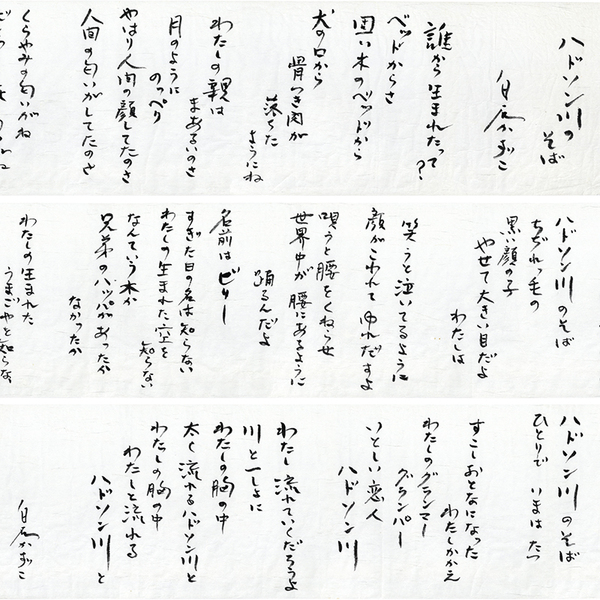 ハドソン川の
そば
白石かずこ
誰から生まれたって?
ベッドからさ
固い木のベッドから
犬の口から
骨つき肉が
落ちた
ようにね
わたしの親は
まあるいのさ
月のように
のっぺり
やはり人間の顔してたのさ
人間の匂いがしてたのさ
くらやみの匂いがね
ハドソン川のそば
ちぢれっ毛の
黒い顔の子
やせて大きい目だよ
わたしは
笑うと泣いてるように
顔がこわれて ゆれだすよ
唄うと腰をくねらせ
世界中が 腰にあるように
踊るんだよ
名前はビリー
すぎた日の名は知らない
わたしの生まれた空を
知らない
なんていう木か
兄弟のハッパがあったか
なかったか
わたしの生まれた
うまごやも知らな
ハドソン川のそば
ひとりで いまは たつ
すこしおとなになった
わたしかかえ
わたしのグランマー
グランパー
いとしい恋人
ハドソン川
わたし流れていくだろうよ
川と一しょに
わたしの胸の中
太く流れるハドソン川と
わたしの胸の中
わたしと流れる
ハドソン川と
白石かずこ